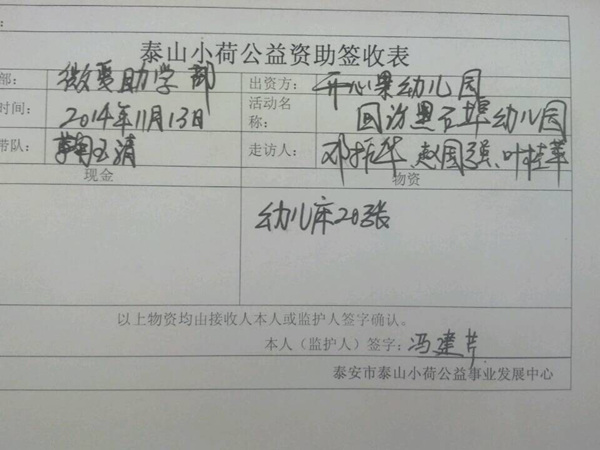 泰山小荷公益资助签收表
部： 微爱助学部 出资方： 开心果幼儿园
时间： 2014年11月13日 活动名称： 回访黑石埠幼儿园
带队： 玉清 走访人： 邓振华、赵国强、叶桂苹
现金 物资
幼儿床20张
以上物资均由接收人本人或监护人签字确认。
本人（监护人）签字： 冯建芹
泰安市泰山小荷公益事业发展中心